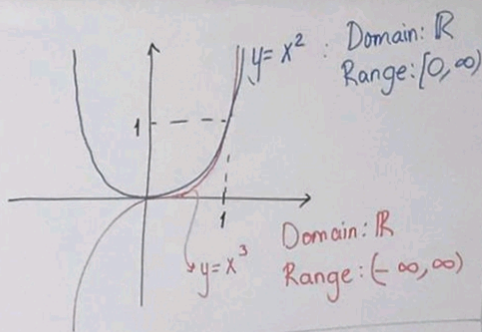 y = x² : Domain: ℝ
Range: [0, ∞)
1
1
y = x³
Domain: ℝ
Range: (-∞, ∞)